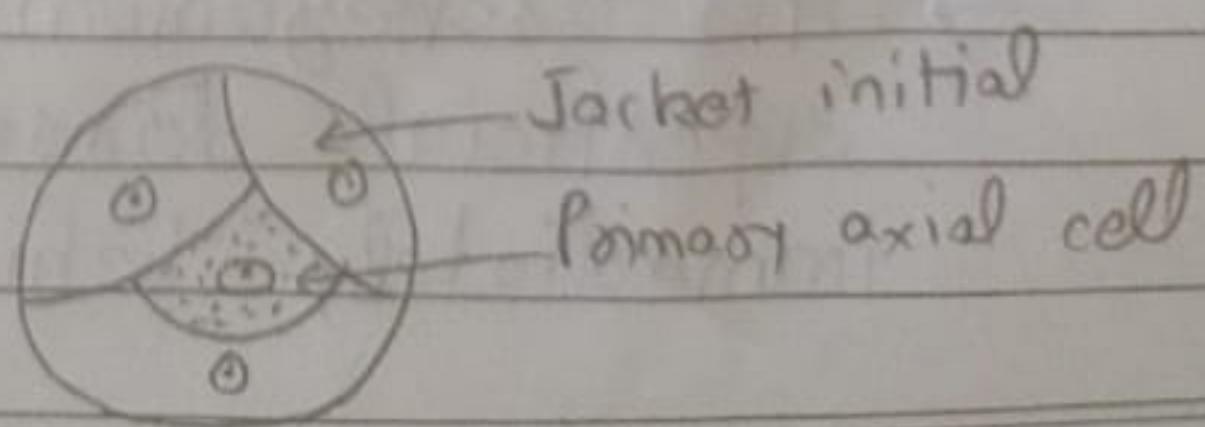 Jacket initial
Primary axial cell